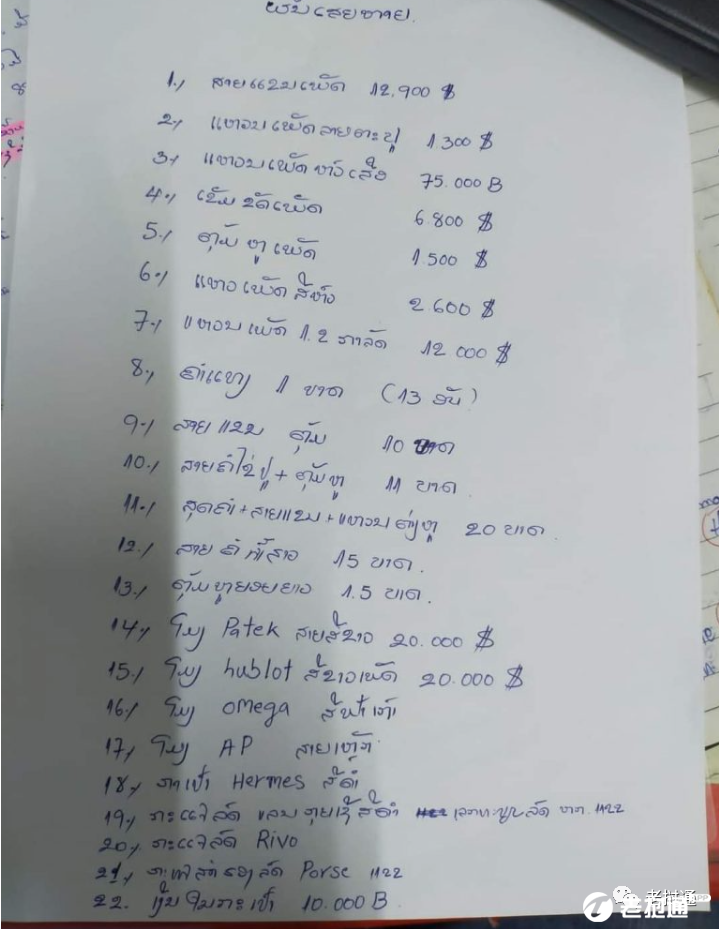 ຜົນເສຍຫາຍ.
1./ ສາຍແຂນເພັດ 12.900 $
2./ ແຫວນເພັດລາຍຕະປູ 1300 $
3./ ແຫວນເພັດຫົວເສືອ 75.000 B
4./ ເຂັມຂັດເພັດ 6.800 $
5./ ຕຸ້ມຫູເພັດ 1.500 $
6./ ແຫວນເພັດ 2.600 $
7./ ແຫວນເພັດ 1.2 ກາລັດ 12 000 $
8./ ຄຳແທ່ງ 1 ບາດ (13 ອັນ)
9./ ສາຍແຂນ ຕຸ້ມ 10 ບາດ
10./ ສາຍຄໍໄຂ່ປູ + ຕຸ້ມຫູ 11 ບາດ
11./ ສຸດຄໍ + ສາຍແຂນ + ແຫວນ ຕຸ່ງຫູ 20 ບາດ.
12./ ສາຍ ຄໍ 15 ບາດ.
13./ ຕຸ້ມຫູ 1.5 ບາດ.
14./ ໂມງ Patek ສາຍສີຂາວ 20.000 $
15./ ໂມງ hublot ສີຂາວເພັດ 20.000 $
16./ ໂມງ omega ສີຟ້າ
17./ ໂມງ AP ສາຍເຫຼັກ
18./ ກາເປົາ Hermes ສີດຳ
19./ ກະແຈລົດ ສີດຳ ເລກທະບຽນລົດ ຫກ. 1122
20./ ກະແຈລົດ Rivo
21./ ກະແຈສຳຮອງລົດ Porse 1122
22. ເງິນໃນກະເປົາ 10.000 B.
老挝通
老挝通